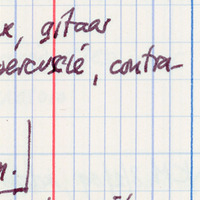 x, gitaar
percussie, contra-
n.